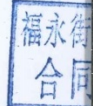 福永街
合同